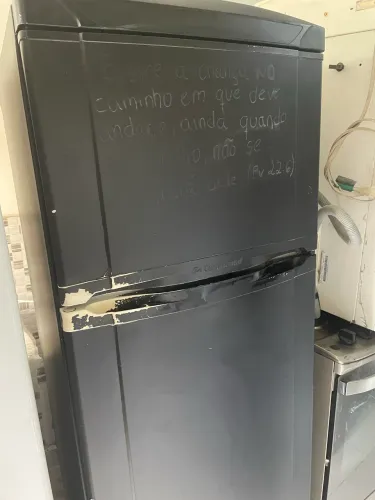 a criança no
caminho em que deve
andar, ainda quando
não se
dele (Pv 22.6)